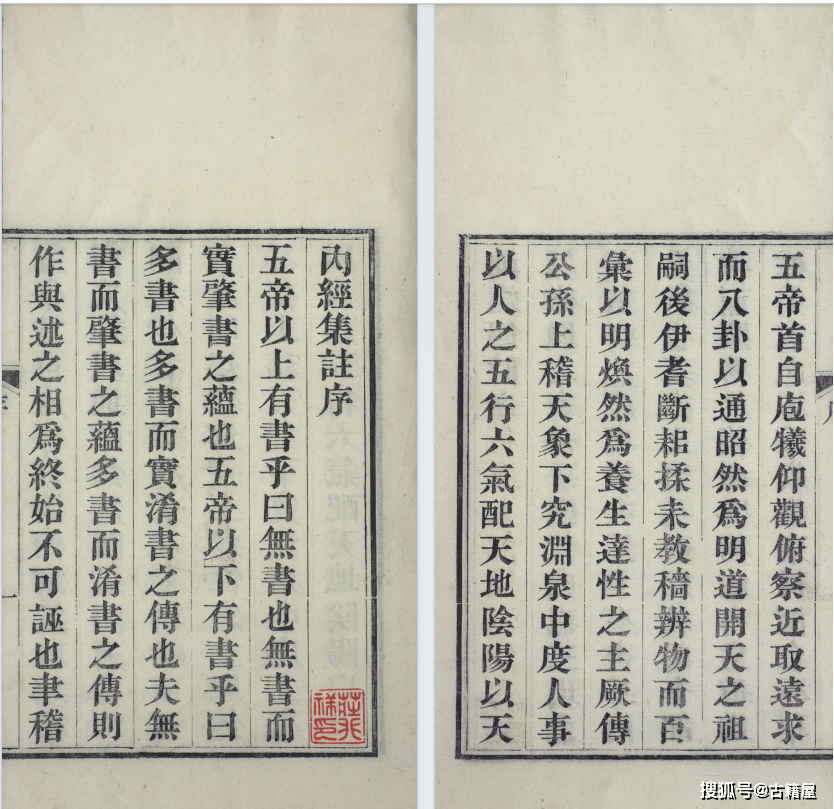 內經集註序
五帝以上有書乎曰無書也無書而
實肇書之蘊也五帝以下有書乎曰
多書也多書而實淆書之傳也夫無
書而肇書之蘊多書而淆書之傳則
作與述之相爲終始不可誣也聿稽
五帝首自庖犧仰觀俯察近取遠求
而八卦以通昭然爲明道開天之祖
嗣後伊耆斲耜揉耒教穡辨物而百
彙以明煥然爲養生達性之主厥傳
公孫上稽天象下究淵泉中度人事
以人之五行六氣配天地陰陽以天
搜狐号@古籍屋